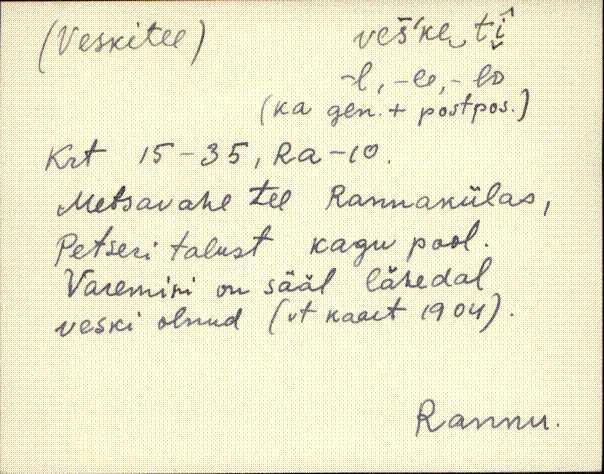 (Veskitee) veške‿tî
-l, -le, -lt
(ka gen. + postpos.)
Krt 15-35, Ra-10.
Metsavahe tee Rannakülas,
Petseri talust kagu pool.
Varemini on sääl lähedal
veski olnud (vt kaart 1904).
Rannu.